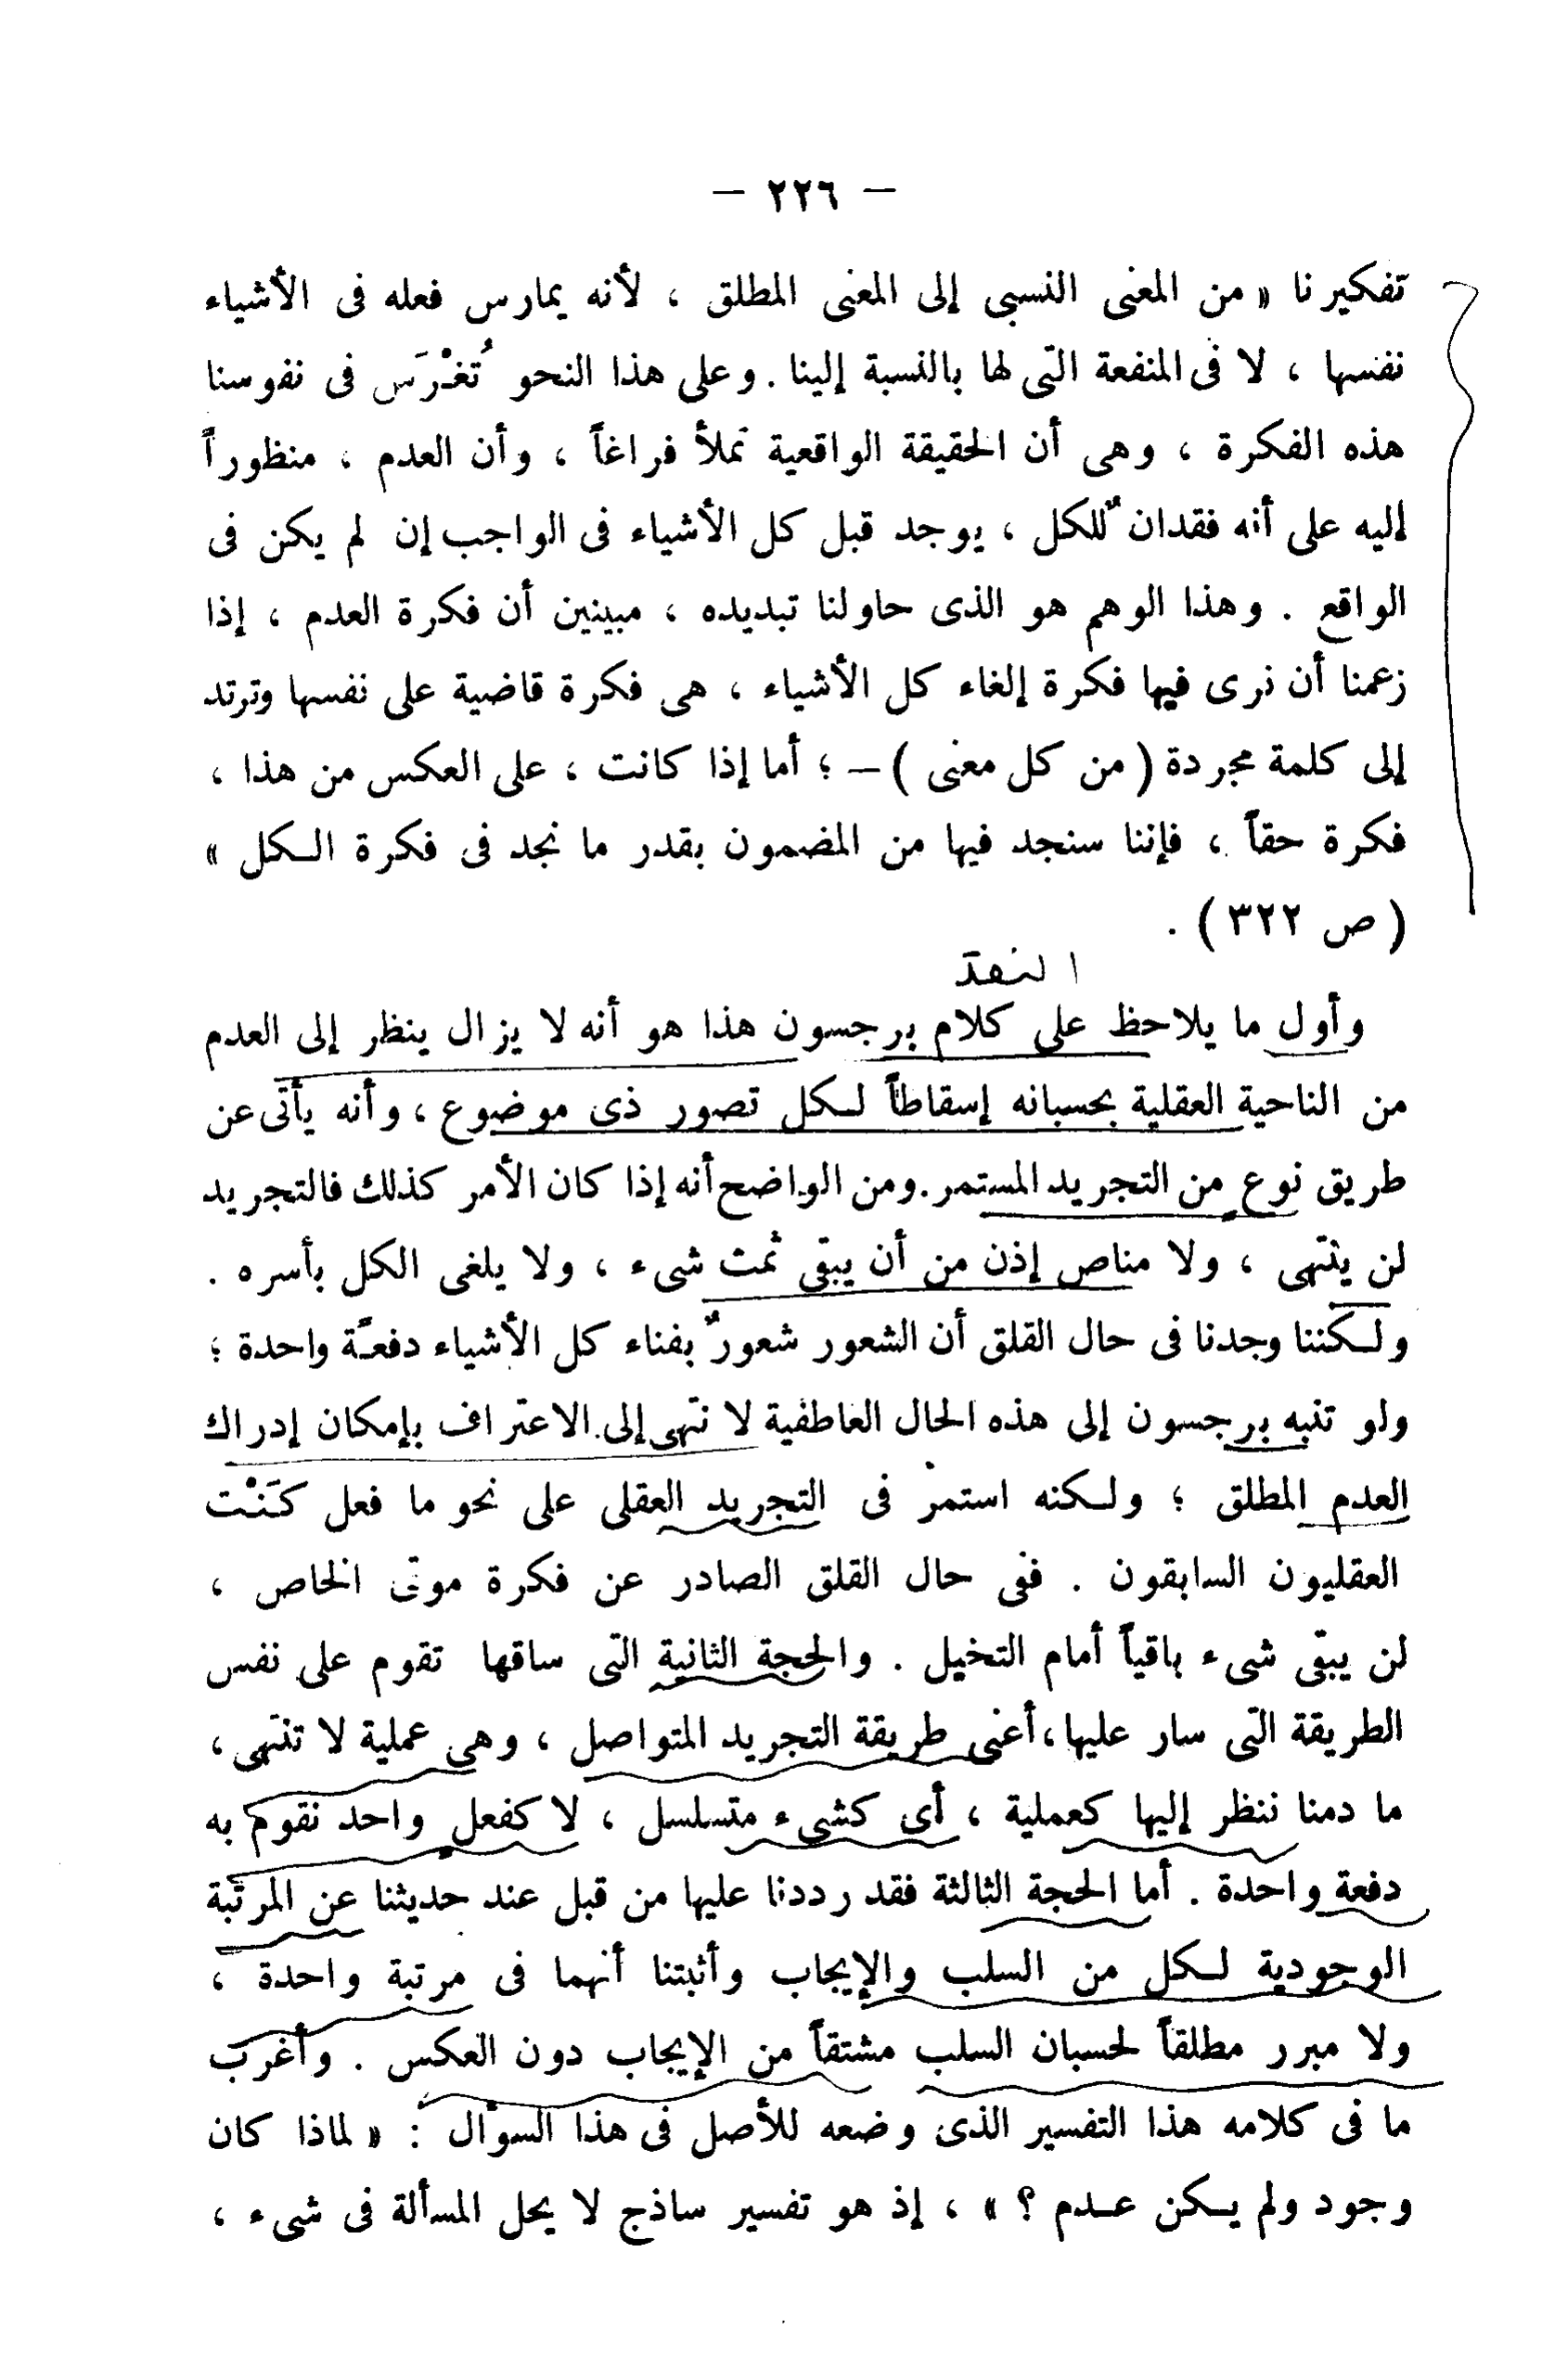 — ٢٢٦ —
تفكيرنا « من المعنى النسبى إلى المعنى المطلق ، لأنه يمارس فعله فى الأشياء
نفسها ، لا فى المنفعة التى لها بالنسبة إلينا . وعلى هذا النحو تُغْرَس فى نفوسنا
هذه الفكرة ، وهى أن الحقيقة الواقعية تملأ فراغاً ، وأن العدم ، منظوراً
إليه على أنه فقدان ٌللكل ، يوجد قبل كل الأشياء فى الواجب إن لم يكن فى
الواقع . وهذا الوهم هو الذى حاولنا تبديده ، مبينين أن فكرة العدم ، إذا
زعمنا أن نرى فيها فكرة إلغاء كل الأشياء ، هى فكرة قاضية على نفسها وترتد
إلى كلمة مجردة ( من كل معنى ) — ؛ أما إذا كانت ، على العكس من هذا ،
فكرة حقاً ، فإننا سنجد فيها من المضمون بقدر ما نجد فى فكرة الكل »
( ص ٣٢٢ ) .
النقد
وأول ما يلاحظ على كلام برجسون هذا هو أنه لا يزال ينظر إلى العدم
من الناحية العقلية بحسبانه إسقاطاً لكل تصور ذى موضوع ، وأنه يأتى عن
طريق نوع من التجريد المستمر . ومن الواضح أنه إذا كان الأمر كذلك فالتجريد
لن ينتهى ، ولا مناص إذن من أن يبقى ثمت شىء ، ولا يلغى الكل بأسره .
ولكننا وجدنا فى حال القلق أن الشعور شعورٌ بفناء كل الأشياء دفعةً واحدة ؛
ولو تنبه برجسون إلى هذه الحال العاطفية لا نتهى إلى الاعتراف بإمكان إدراك
العدم المطلق ؛ ولكنه استمر فى التجريد العقلى على نحو ما فعل كَنْت
العقليون السابقون . ففى حال القلق الصادر عن فكرة موتى الخاص ،
لن يبقى شىء باقياً أمام التخيل . والحجة الثانية التى ساقها تقوم على نفس
الطريقة التى سار عليها ، أعنى طريقة التجريد المتواصل ، وهى عملية لا تنتهى ،
ما دمنا ننظر إليها كعملية ، أى كشىء متسلسل ، لا كفعلٍ واحد نقوم به
دفعة واحدة . أما الحجة الثالثة فقد رددنا عليها من قبل عند حديثنا عن المرتبة
الوجودية لكل من السلب والإيجاب وأثبتنا أنهما فى مرتبة واحدة ،
ولا مبرر مطلقاً لحسبان السلب مشتقاً من الإيجاب دون العكس . وأغرب
ما فى كلامه هذا التفسير الذى وضعه للأصل فى هذا السؤال : « لماذا كان
وجود ولم يكن عدم ؟ » ، إذ هو تفسير ساذج لا يحل المسألة فى شىء ،